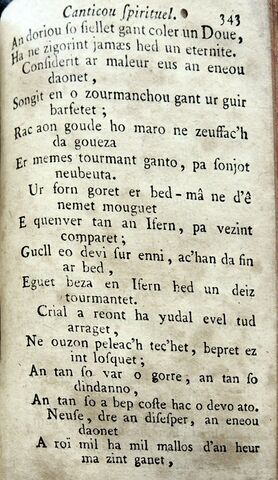 Canticou ſpirituel. 343
An doriou ſo ſiellet gant coler un Doue,
Ha ne zigorint jamæs hed un eternite.
Conſiderit ar maleur eus an eneou
daonet,
Songit en o zourmanchou gant ur guir
barfetet ;
Rac aon goude ho maro ne zeuffac'h
da goueza
Er memes tourmant ganto, pa ſonjot
neubeuta.
Ur forn goret er bed-mâ ne d'ê
nemet mouguet
E quenver tan an Ifern, pa vezint
comparet ;
Guell eo devi ſur enni, ac'han da fin
ar bed,
Eguet beza en Ifern hed un deiz
tourmantet.
Crial a reont ha yudal evel tud
arraget,
Ne ouzon peleac'h tec'het, bepret ez
int loſquet ;
An tan ſo var o gorre, an tan ſo
dindanno,
An tan ſo a bep coſte hac o devo ato.
Neuſe, dre an diſeſper, an eneou
daonet
A roï mil ha mil mallos d'an heur
ma zint ganet,